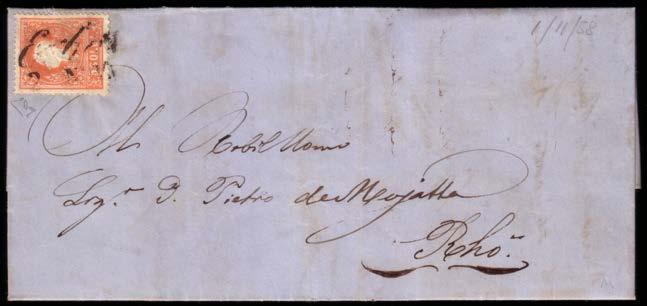 1/11/58
Al Nobil Uomo
Sig.r D. Pietro de Mojatta
Rhò